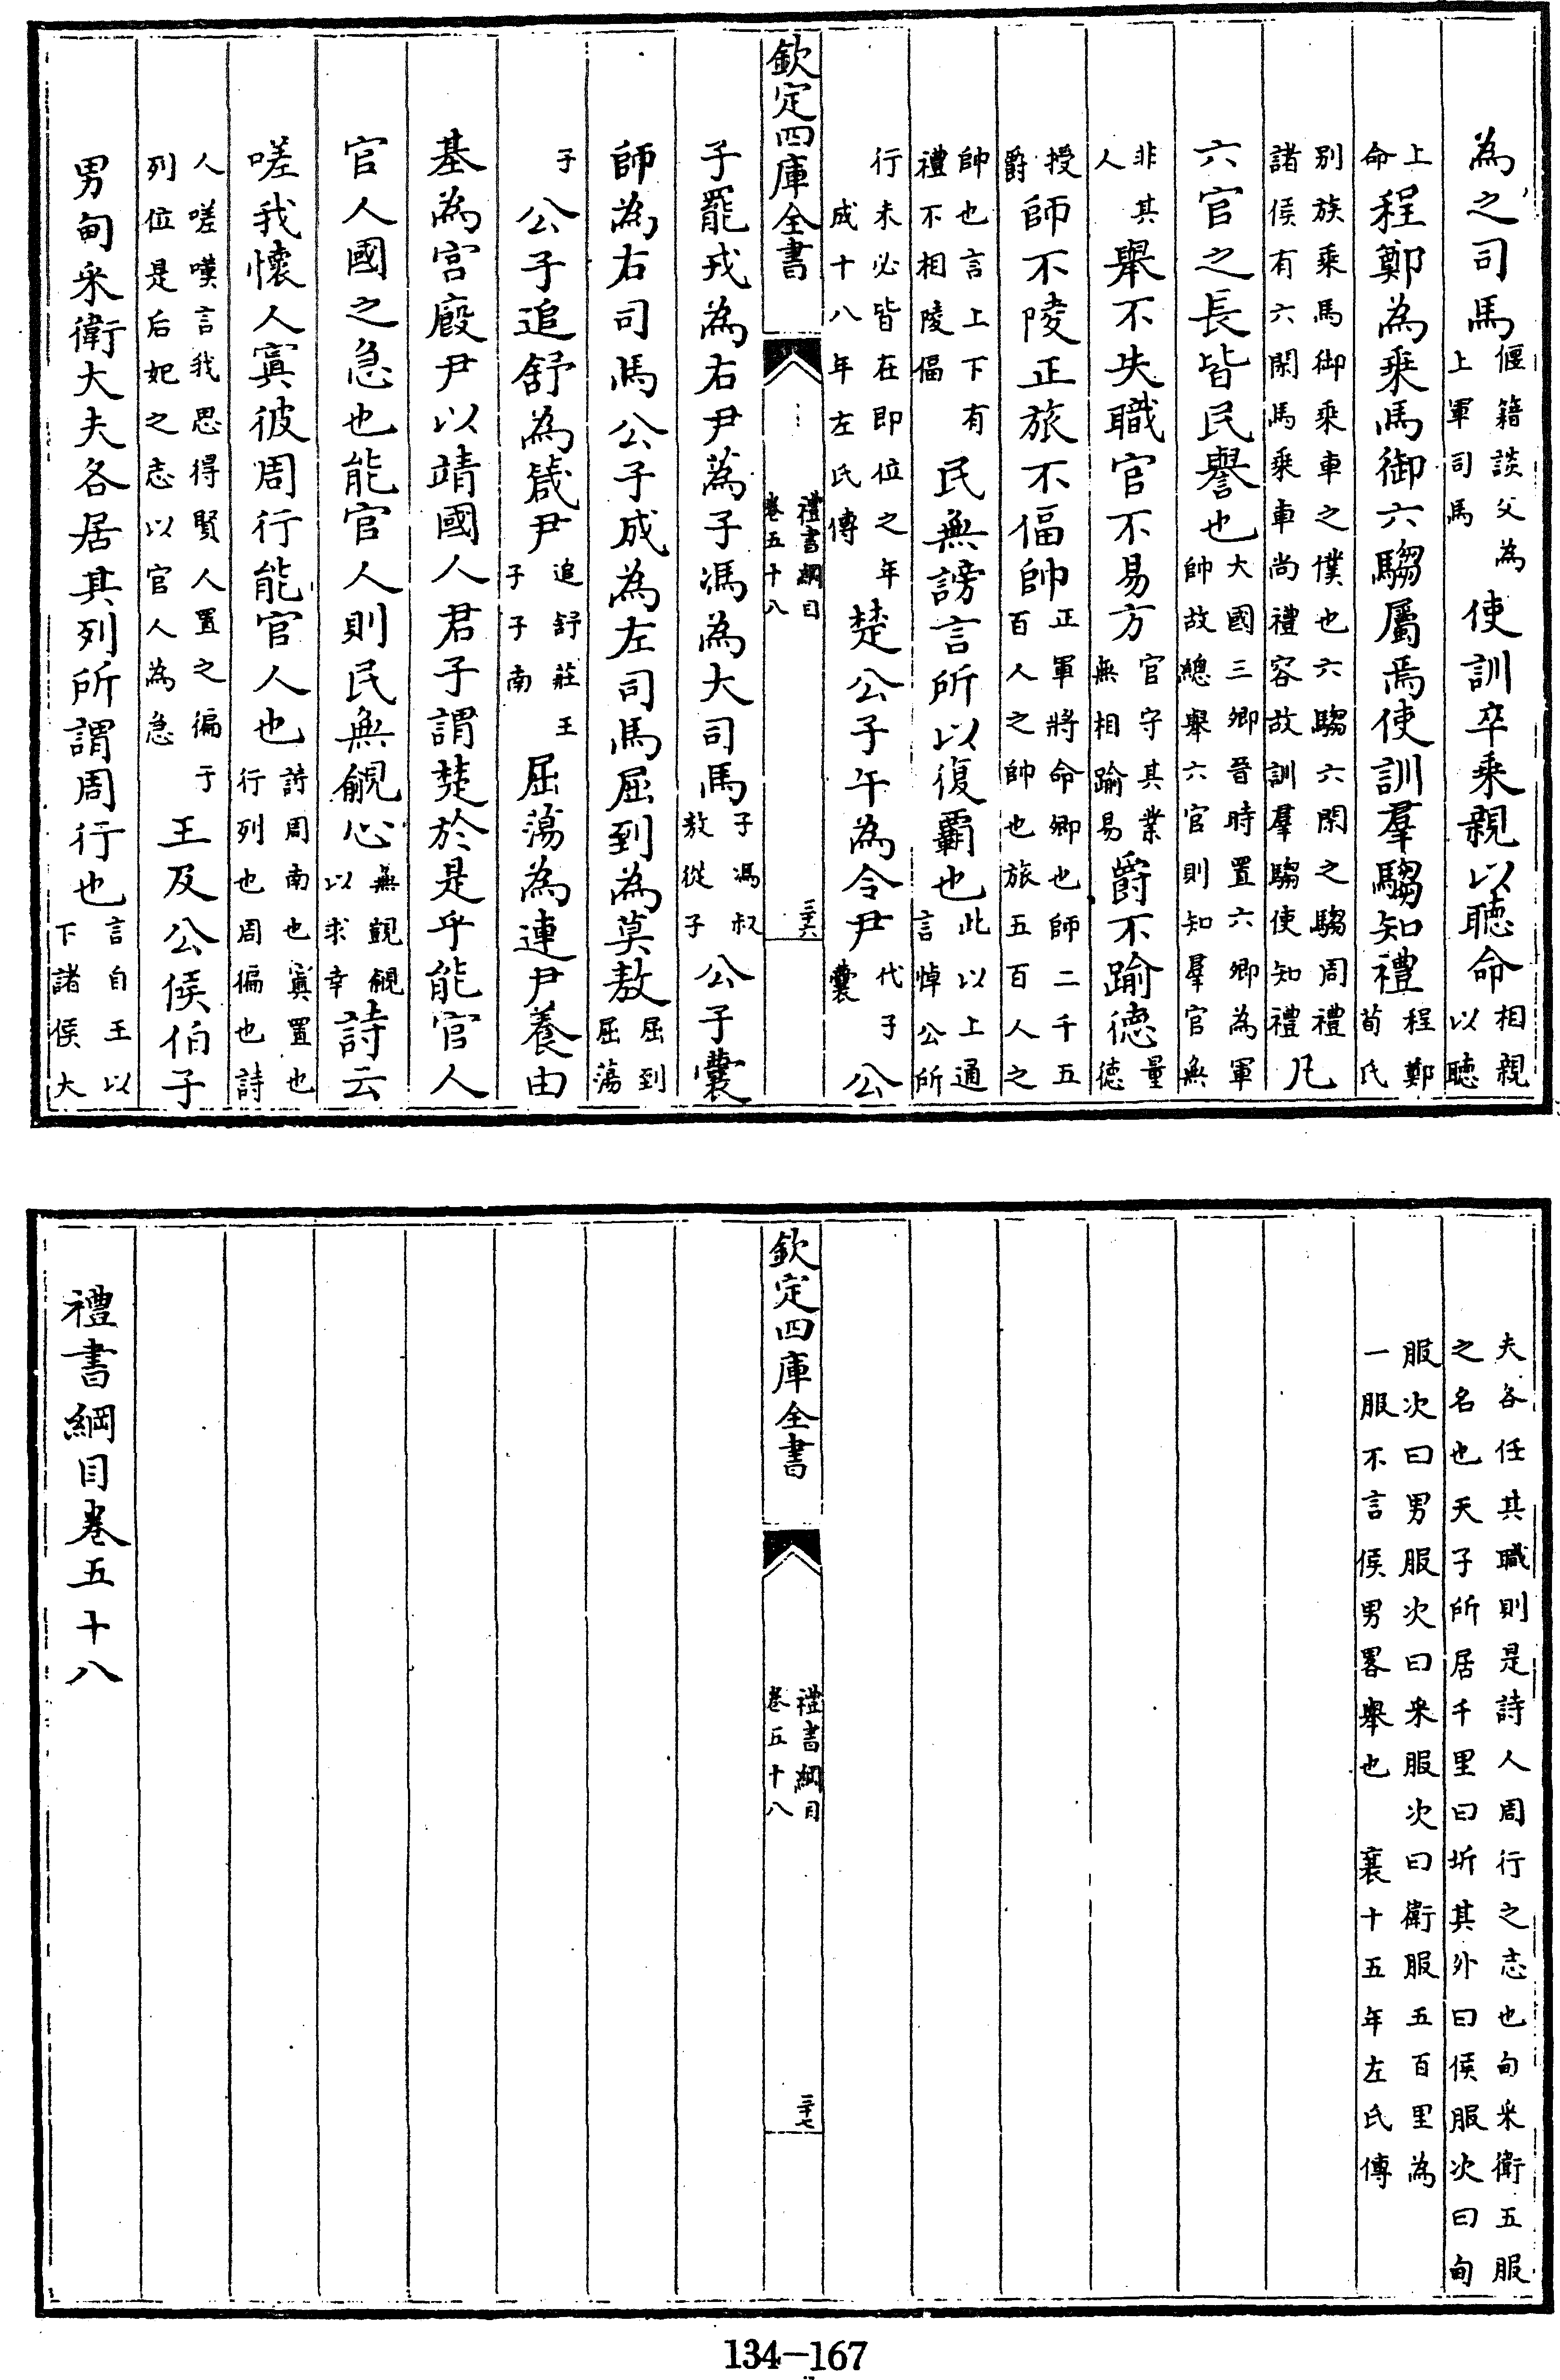 為之司馬偃籍談父為上軍司馬使訓卒乘親以聽命相親以聽
上命程鄭為乗馬御六騶屬焉使訓羣騶知禮程鄭荀氏
别族乘馬御乘車之僕也六騶六閑之騶周禮諸侯有六閑馬乘車尚禮容故訓羣騶使知禮凡
六官之長皆民譽也大國三卿晉時置六卿為軍帥故總舉六官則知羣官無
非其人舉不失職官不易方官守其業無相踰易爵不踰德量德
授爵師不陵正旅不偪帥正軍將命卿也師二千五百人之帥也旅五百人之
帥也言上下有禮不相陵偪民無謗言所以復霸也此以上通言悼公所
行未必皆在即位之年成十八年左氏傳楚公子午為令尹代子囊公
欽定四庫全書
禮書綱目
卷五十八
三十六
子罷戎為右尹蒍子馮為大司馬子馮叔敖從子公子櫜
師為右司馬公子成為左司馬屈到為莫敖屈到屈蕩
子公子追舒為箴尹追舒莊王子子南屈蕩為連尹養由
基為宮廄尹以靖國人君子謂楚於是乎能官人
官人國之急也能官人則民無覦心無覬覦以求幸詩云
嗟我懷人寘彼周行能官人也詩周南也寘置也行列也周徧也詩
人嗟嘆言我思得賢人置之徧于列位是后妃之志以官人為急王及公侯伯子
男甸采衛大夫各居其列所謂周行也言自王以下諸侯大
夫各任其職則是詩人周行之志也甸采衛五服之名也天子所居千里曰圻其外曰侯服次曰甸
服次曰男服次曰采服次曰衛服五百里為一服不言侯男畧舉也襄十五年左氏傳
欽定四庫全書
禮書綱目
卷五十八
三十七
禮書綱目卷五十八
134-167